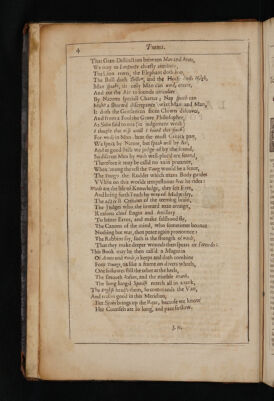 4
Poems.
That Gods Distinction between Man and Beast,
We may to Language chiefly attribute,
The Lion roars, the Elephant doth
The Bull doth Bellow, and the Horse doth Neigh,
Man speaks, its only Man can words create,
And cut the Air to sounds articulate
By Natures special Charter; Nay speech can
Make a shrewd discrepance 'twixt Man and Man,
It doth the Gentleman from Clown discover,
And from a Fool the Grave Philosopher,
As Solon said to one in judgement weak
I thought thee wise untill I heard thee speak
For words in Man bear the most Comick part,
We speak by Nature, but speak well by Art,
And as good Bells we judge of by the sound,
So discreet Men by words well-plac'd are found,
Therefore it may be call'd no vain pretence,
When 'mong the rest the Tongue would be a sense,
The Tongue the Rudder which mans Body guides
Whilst on this worlds tempestuous Sea he rides:
Words are the life of Knowledge, they set free,
And bring forth Truth by way of Midwifry,
The activ'st Creature of the teeming brain,
The Judges who the inward man arraign,
Reasons chief Engin and Artillery
To batter Error, and make falshood fly,
The Canons of the mind, who sometimes bounce
Nothing but war, then peace again pronounce:
The Rabbins say, such is the strength of words,
That they make deeper wounds than spears or swords:
This Book may be then call'd a Magazin
Of Arms and Words, it keeps and doth combine
Four Tongues, as like a storm on divers wheels,
One follows still the other at the heels,
The Smooth Italian, and the nimble Frank,
The long lung'd Spanish march all in a rank,
The English heads them, so commands the Van,
And reason good in this Meridian,
But Spain brings up the Rear, because we know
Her Counsels are so long, and pace so slow.
J. H.